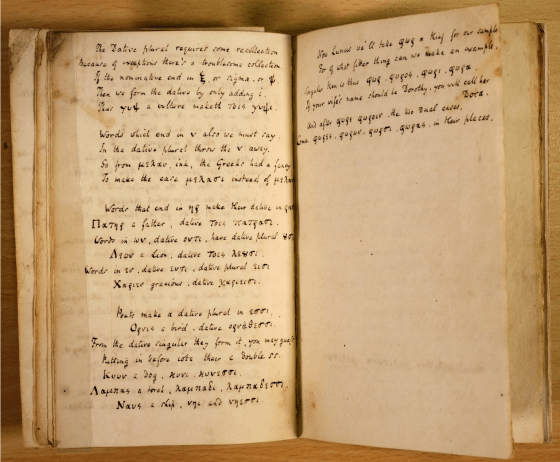 The Dative plural requires some recollection
Because of exceptions there's a troublesome collection
If the nominative end in ξ, or sigma, or ψ
Then we form the dative by only adding ι.
Thus γυψ a vulture maketh τοις γυψι.
Words which end in ν also we must say
In the dative plural throw the ν away.
So from μελαν, ink, the Greeks had a fancy
To make the case μελασι instead of
Words that end in ηρ make their dative in
Πατηρ a father, dative τοις πατρασι.
Words in ων, dative οντι, have dative plural
Λεων a Lion, dative τοις λεουσι.
Words in εν, dative εντι, dative plural εισι
Χαριεν gracious, dative χαριεισι.
Poets make a dative plural in εσσι,
Ορνις a bird, dative
From the dative singular they form it, you may
Putting in before iota their a double ss.
Κυων a dog, κυνι, κυνεσσι.
Λαμπας a torch, λαμπαδι, λαμπαδεσσι,
Ναυς a ship, νηι and νηεσσι.
Now Lunus we'll take φωρ a thief for our sample
For of what fitter thing can we make an example.
Singular then is thus φωρ, φωρος, φωρι, φωρα.
If your wife's name should be Dorothy, you will call her Dora.
And after φωρε φωροιν, the two Dual cases,
Come φωρες, φωρων, φωρσι, φωρας, in their places.